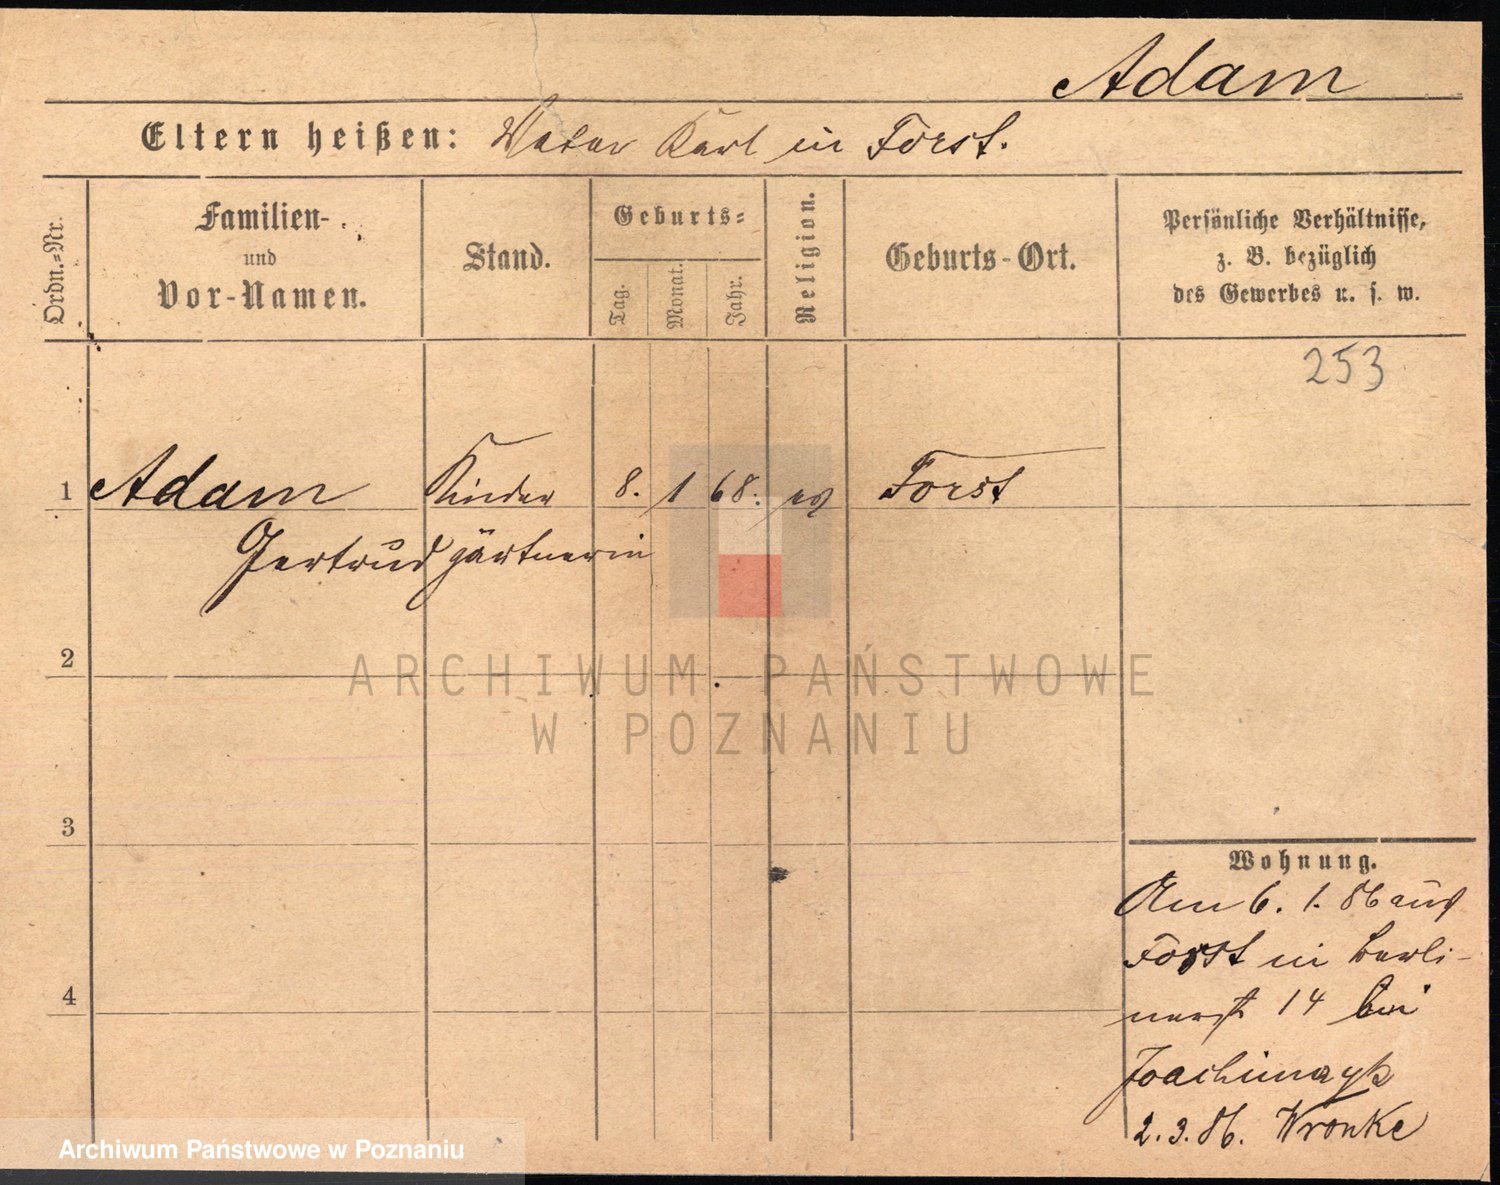 Adam
Eltern heißen: Vater Karl in Forst.
Ordn.-Nr.
Familien-
und
Vor-Namen.
Stand.
Geburts-
Tag.
Monat.
Jahr.
Religion.
Geburts-Ort.
Persönliche Verhältnisse,
z. B. bezüglich
des Gewerbes u. s. w.
253
1 Adam Kinder 8. 1 68. ev Forst
Gertrud gärtnerin
2
3
4
Wohnung.
Am 6. 1. 86 aus
Forst in Berli-
nerst 14 bei
2. 3. 86. Wronke
ARCHIWUM PAŃSTWOWE
W POZNANIU
Archiwum Państwowe w Poznaniu